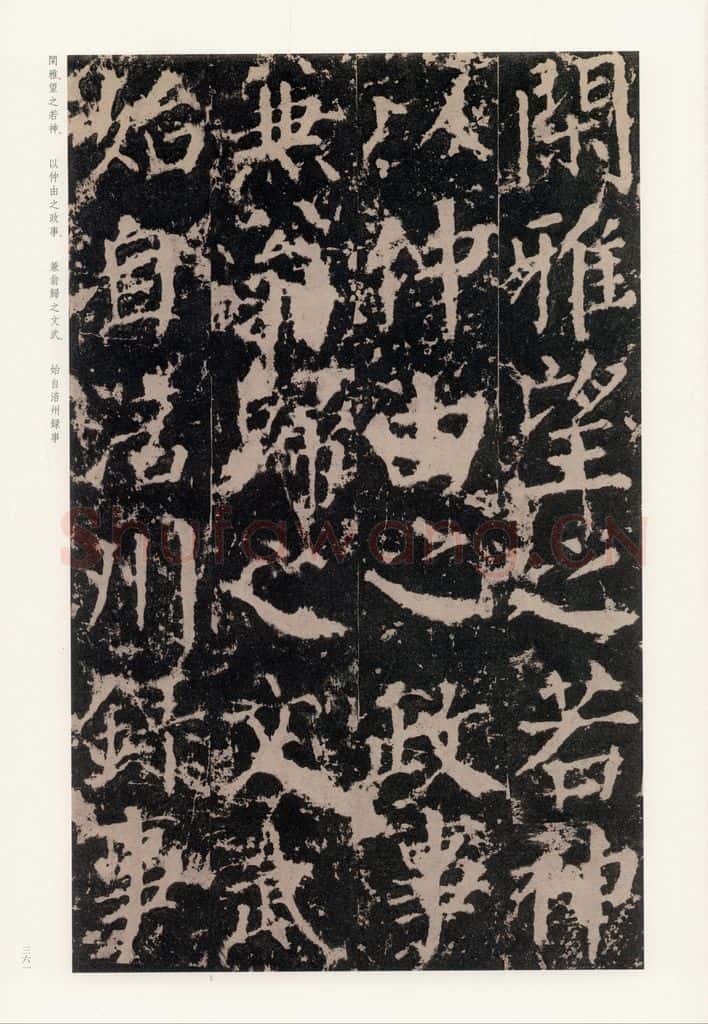 閑雅望之若神
以仲由之政事
兼翁歸之文武
始自涪州録事
閑雅、望之若神。 以仲由之政事、 兼翁歸之文武。 始自涪州録事
三六一
Shufawang.CN